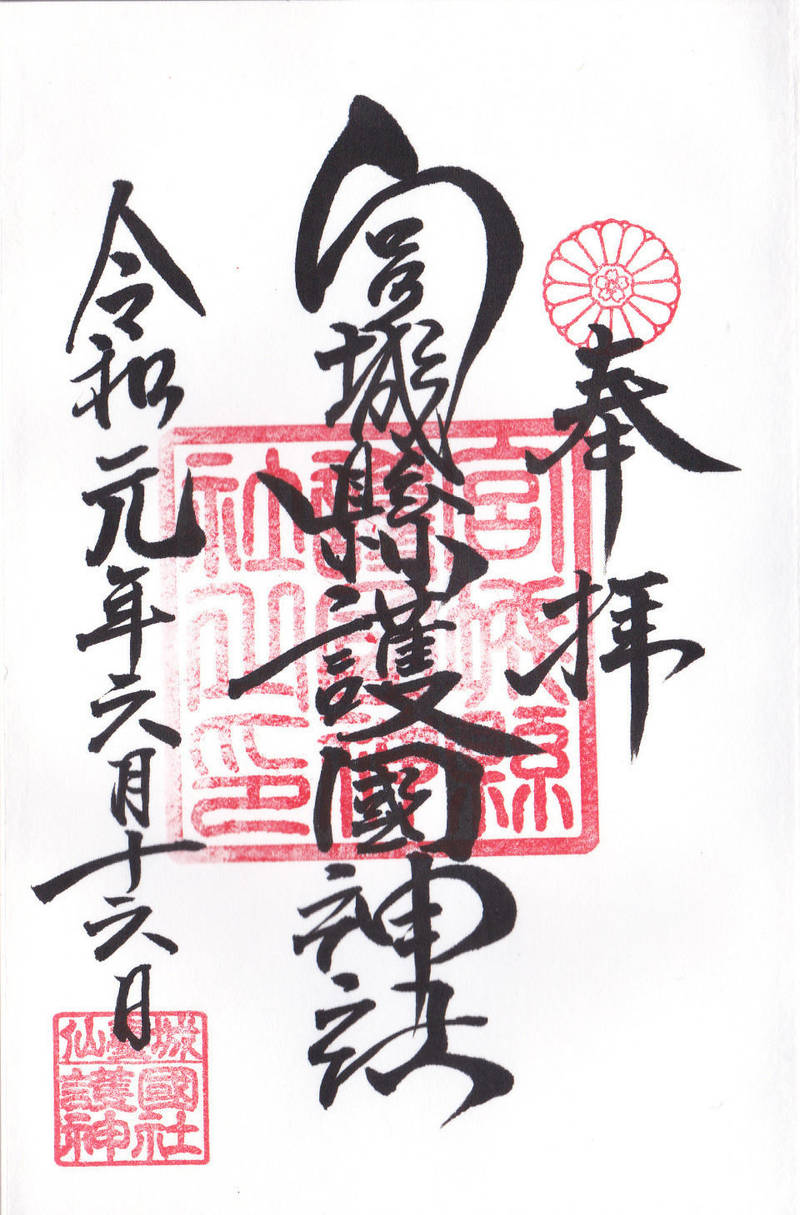 奉拝
宮城縣護國神社
令和元年六月十六日
宮城縣
護國神
社之印
仙臺城
護國
神社